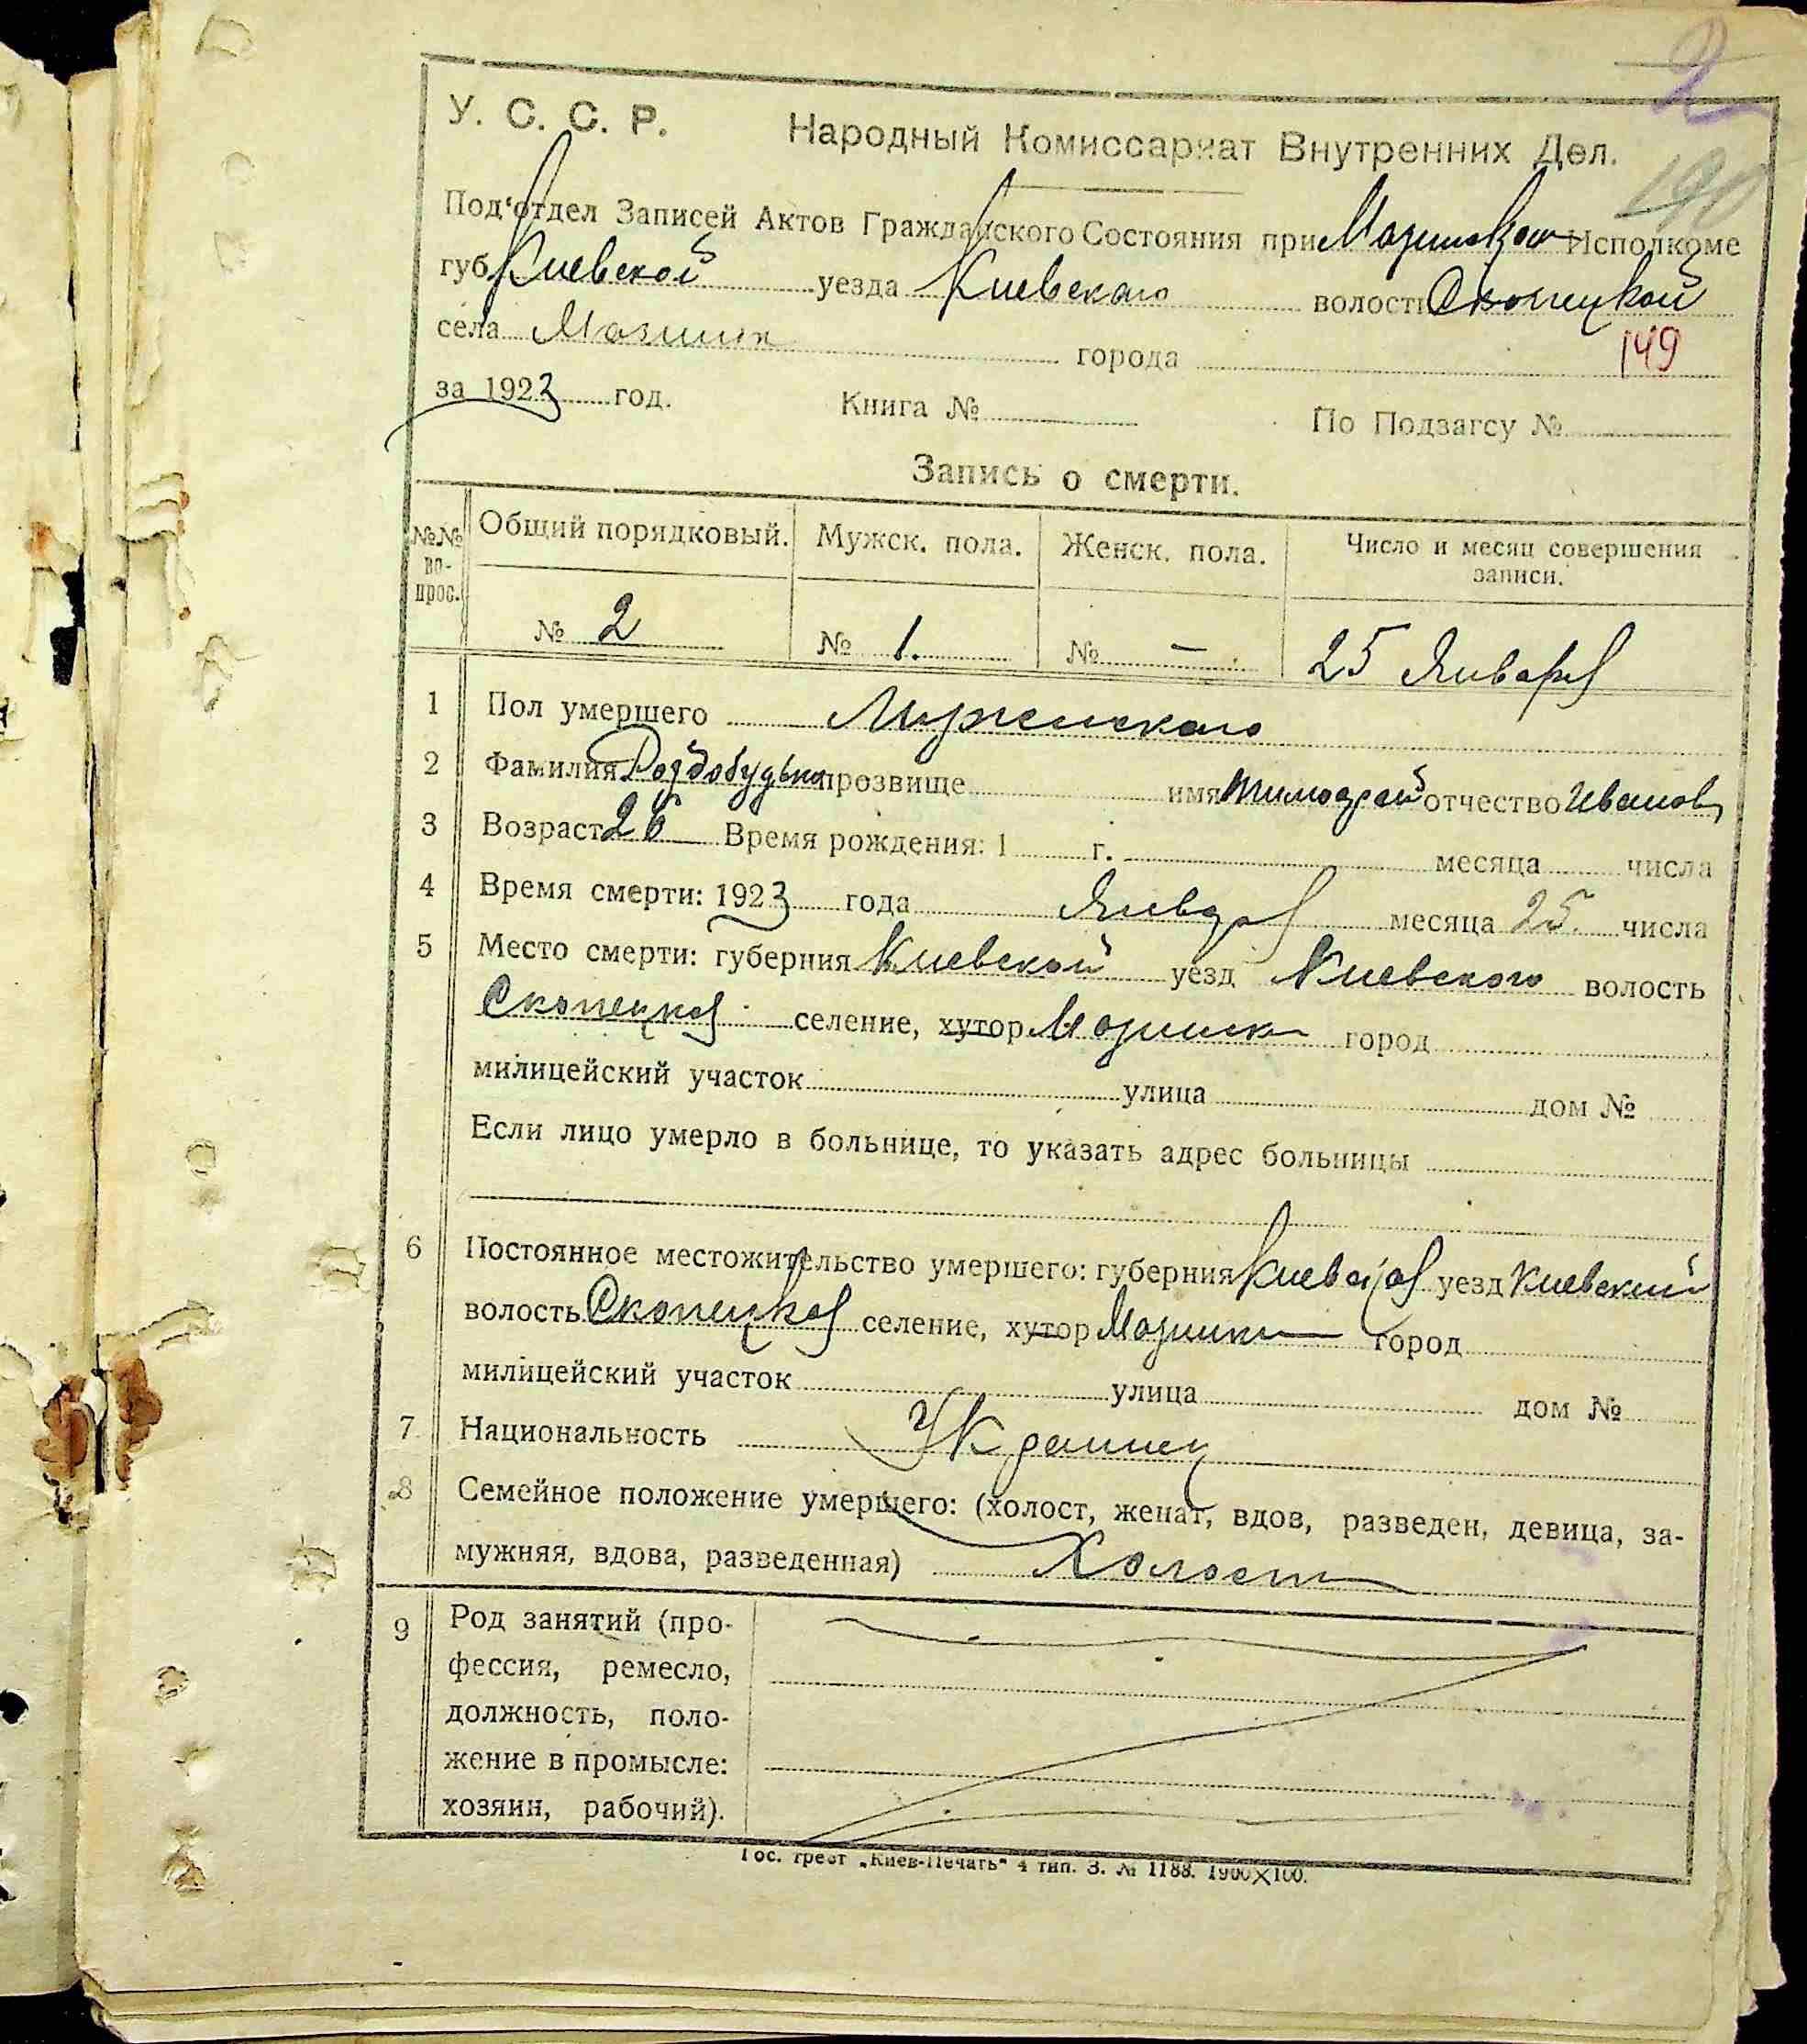 2
190
У. С. С. Р. Народный Комиссариат Внутренних Дел.
Под'отдел Записей Актов Гражданского Состояния при Исполкоме
губ Киевской уезда Киевского волости Скопецкой
села города 149
за 1923 год. Книга № По Подзагсу №
Запись о смерти.
№№ вопрос. Общий порядковый. Мужск. пола. Женск. пола. Число и месяц совершения записи.
№ 2 № 1. № — 25 Января
1 Пол умершего Мужеского
2 Фамилия Роздобудько прозвище имя Тимофей отчество Иванов
3 Возраст 26 Время рождения: 1 г. месяца числа
4 Время смерти: 1923 года Января месяца 25. числа
5 Место смерти: губерния Киевской уезд Киевского волость
Скопецкой селение, хутор город
милицейский участок улица дом №
Если лицо умерло в больнице, то указать адрес больницы
6 Постоянное местожительство умершего: губерния Киевская уезд Киевский
волость Скопецкая селение, хутор город
милицейский участок улица дом №
7 Национальность Украинец
8 Семейное положение умершего: (холост, женат, вдов, разведен, девица, за-
мужняя, вдова, разведенная) Холост
9 Род занятий (про-
фессия, ремесло,
должность, поло-
жение в промысле:
хозяин, рабочий).
Гос. трест „Киев-Печать" 4 тип. З. № 1188. 1900×100.